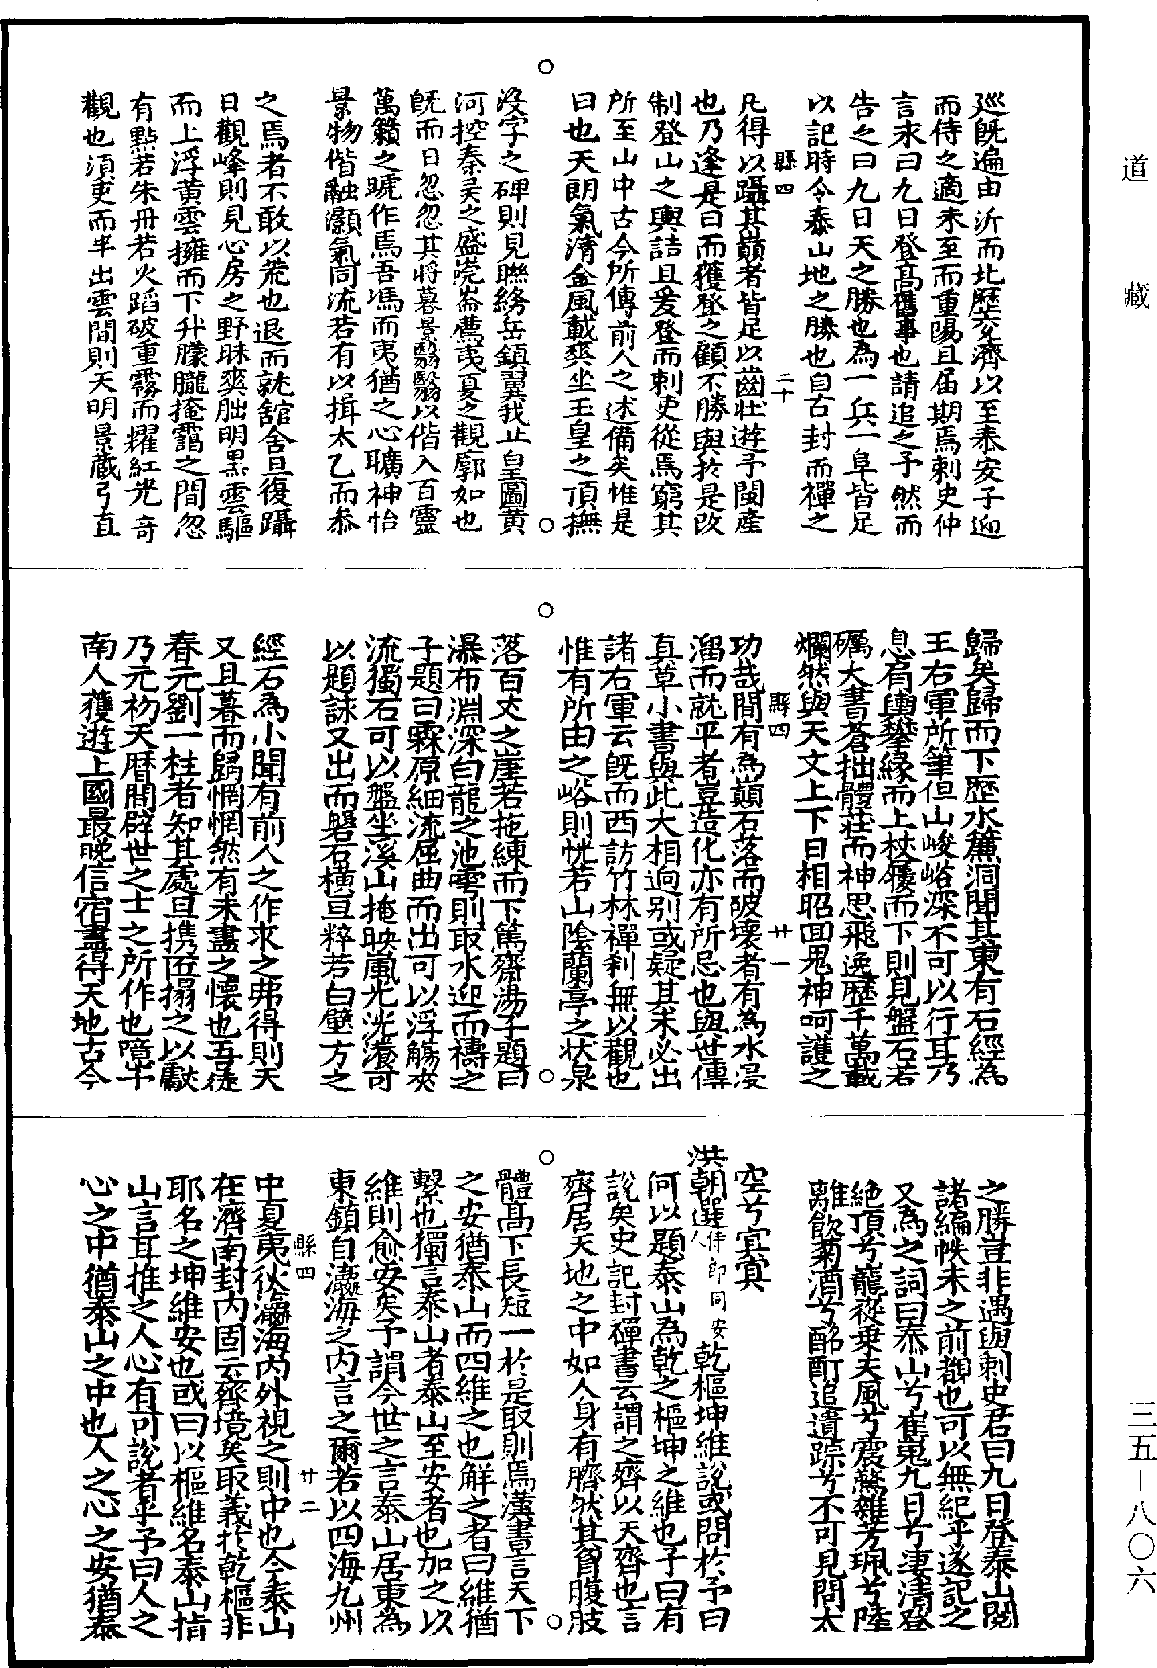 道藏
三五—八〇六
巡既遍由沂而北歷兖濟以至泰安子迎
而侍之適來至而重陽且届期焉刺史仲
言求曰九日登高舊事也請追之予然而
告之曰九日天之勝也為一丘一阜皆足
以記時令泰山地之勝也自古封而禪之
縣四
二十
凡得以躡其巔者皆足以齒壯遊予閩產
也乃逢是日而獲登之顧不勝與於是改
制登山之輿詰旦爰登而刺史從焉窮其
所至山中古今所傳前人之述備矣惟是
日也天朗氣清金風載爽坐玉皇之頂撫
没字之碑則見聯絡岳鎮翼我止皇圖黃
河控秦吴之盛崐崙薦夷夏之觀廓如也
既而日忽忽其將暮景翳翳以偕入百靈
萬籟之號作焉吾馮而夷猶之心曠神怡
景物偕融灝氣同流若有以揖太乙而叅
之焉者不敢以荒也退而就舘舍旦復躡
日觀峰則見心房之野昧爽朏明黑雲驅
而上浮黃雲擁而下升朦朧掩靄之間忽
有點若朱丹若火蹈破重霧而耀紅光奇
觀也須臾而半出雲間則天明景蔵弓直
歸矣歸而下歷水簾洞聞其東有石經為
王右軍所筆但山峻峪深不可以行其乃
息肩輿攀緣而上杖鑁而下則見盤石若
礪大書蒼拙體莊而神思飛逸歷千萬載
爛然與天文上下日相昭回鬼神呵護之
縣四
廿一
功哉間有為巔石落而破壞者有為水浸
溜而就平者豈造化亦有所忌也與世傳
真草小書與此大相逈别或疑其未必出
諸右軍云既而西訪竹林禪刹無以觀也
惟有所由之峪則恍若山陰蘭亭之状泉
落百丈之崖若拖練而下篤齋湯子題曰
瀑布淵深白龍之池雩則取水迎而禱之
子題曰霖原細流屈曲而出可以浮觴夾
流獨石可以盤坐溪山掩映嵐光洸瀁可
以題詠又出而磐石橫亘粹若白壁方之
經石為小聞有前人之作求之弗得則天
又且暮而歸惘惘然有未盡之懷也吾徒
春元劉一柱者知其處旦携匠搨之以獻
乃元杨天曆間辟世之士之所作也噫半
南人獲遊上國最晩信宿盡得天地古今
之勝豈非遇與刺史君曰九日登泰山閱
諸編帙未之前覩也可以無紀乎遂記之
又為之詞曰泰山兮崔嵬九日兮凄清登
絶頂兮巃嵸乗天風兮震驚雜芳珮兮陸
離飲菊酒兮酩酊追遺踪兮不可見問太
空兮寞寞
洪朝選侍郎同安人乾樞坤維説或問於予曰
何以題泰山為乾之樞坤之維也子曰有
説矣史記封禪書云謂之齊以天齊也言
齊居天地之中如人身有臍然其䏿腹肢
體髙下長短一於是取則焉漢書言天下
之安猶泰山而四維之也解之者曰維猶
繫也獨言泰山者泰山至安者也加之以
維則愈安矣予謂今世之言泰山居東為
東鎮自瀛海之内言之爾若以四海九州
縣四
廿二
中夏夷狄瀛海内外視之則中也今泰山
在濟南封内固云齊境矣取義於乾樞非
耶名之坤維安也或曰以樞維名泰山指
山言耳推之人心有可説者乎予曰人之
心之中猶泰山之中也人之心之安猶泰